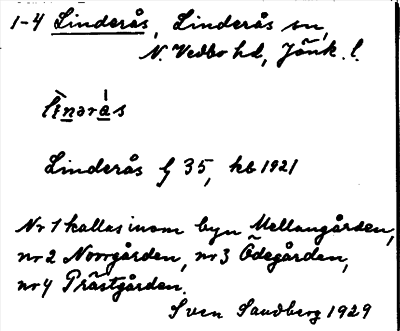 1-4 Linderås, Linderås sn,
N. Vedbo hd, Jönk. l.
Linderås G 35, kb 1921
Nr 1 kallas inom byn Mellangården,
nr 2 Norrgården, nr 3 Ödegården,
nr 4 Prästgården.
Sven Sandberg 1929